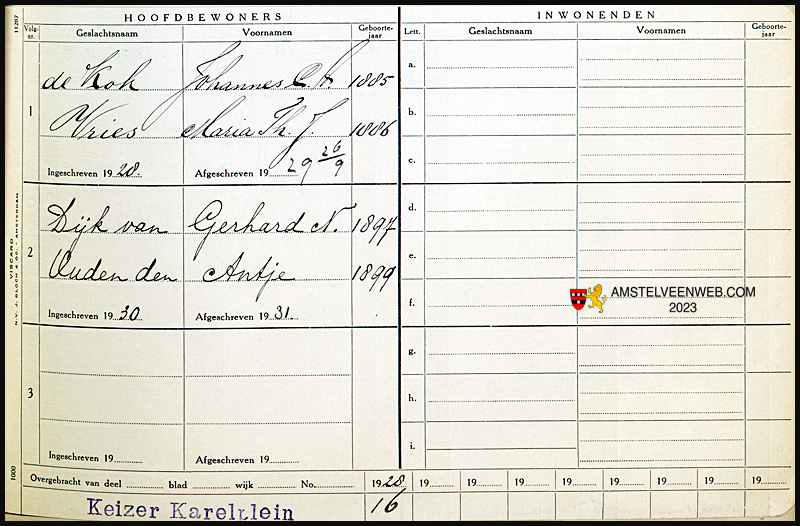 11287
HOOFDBEWONERS
INWONENDEN
Volg-
nr.
Geslachtsnaam
Voornamen
Geboorte-
jaar
Lett.
Geslachtsnaam
Voornamen
Geboorte-
jaar
1
de Kok Johannes C.A. 1885
Vries Maria Th. J. 1886
Ingeschreven 1928.
Afgeschreven 19 29 26/9
a.
b.
c.
2
Dijk van Gerhard N. 1897
Ouden den Antje 1899
Ingeschreven 1930
Afgeschreven 1931.
d.
e.
f.
AMSTELVEENWEB.COM
2023
3
Ingeschreven 19
Afgeschreven 19
g.
h.
i.
VISCARD
N.V. J. BLOCH & CO. - AMSTERDAM
1000
Overgebracht van deel blad wijk No. 1928 19 19 19 19 19 19 19 19
Keizer Karelplein 16